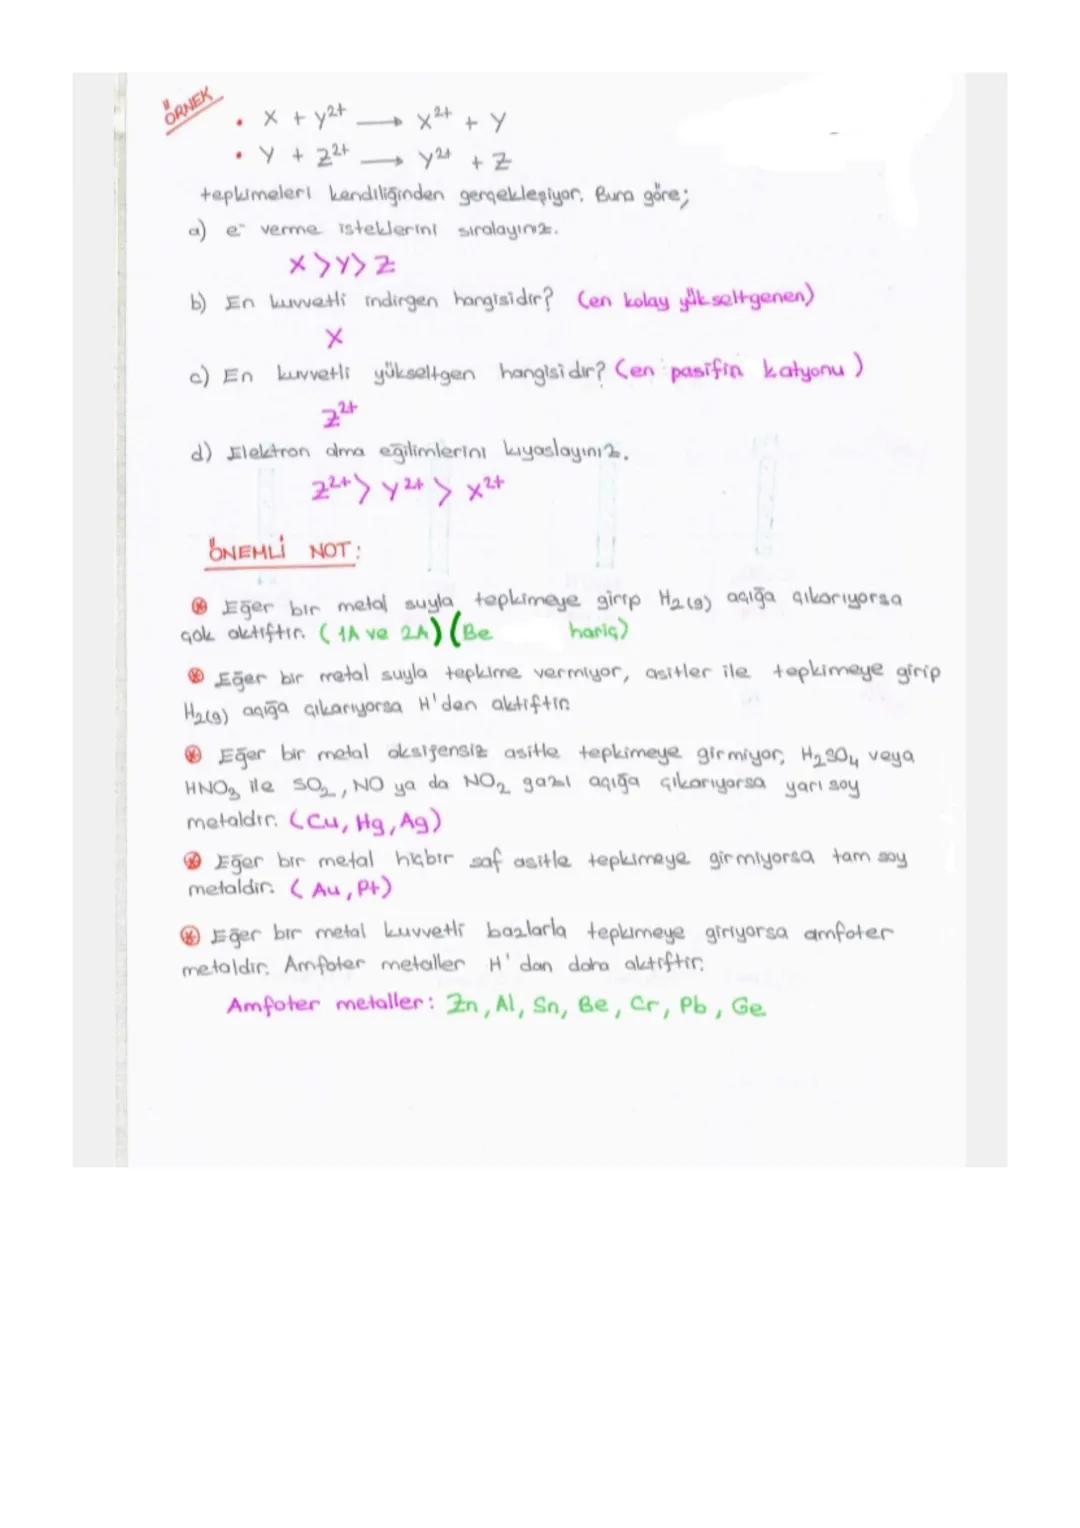 ÖRNEK
• X + Y²⁺ → X²⁺ + Y
• Y + Z²⁺ → Y²⁺ + Z
tepkimeleri kendiliğinden gerçekleşiyor. Buna göre;
a) e⁻ verme isteklerini sıralayınız.
X > Y > Z
b) En kuvvetli indirgen hangisidir? (en kolay yükseltgenen)
X
c) En kuvvetli yükseltgen hangisidir? (en pasifin katyonu)
Z²⁺
d) Elektron alma eğilimlerini kıyaslayınız.
Z²⁺ > Y²⁺ > X²⁺
ÖNEMLİ NOT:
⊛ Eğer bir metal suyla tepkimeye girip H₂(g) açığa çıkarıyorsa
çok aktiftir. (1A ve 2A) (Be hariç)
⊛ Eğer bir metal suyla tepkime vermiyor, asitler ile tepkimeye girip
H₂(g) açığa çıkarıyorsa H'den aktiftir.
⊛ Eğer bir metal oksijensiz asitle tepkimeye girmiyor, H₂SO₄ veya
HNO₃ ile SO₂, NO ya da NO₂ gazı açığa çıkarıyorsa yarı soy
metaldir. (Cu, Hg, Ag)
⊛ Eğer bir metal hiçbir saf asitle tepkimeye girmiyorsa tam soy
metaldir. (Au, Pt)
⊛ Eğer bir metal kuvvetli bazlarla tepkimeye giriyorsa amfoter
metaldir. Amfoter metaller H'dan daha aktiftir.
Amfoter metaller: Zn, Al, Sn, Be, Cr, Pb, Ge